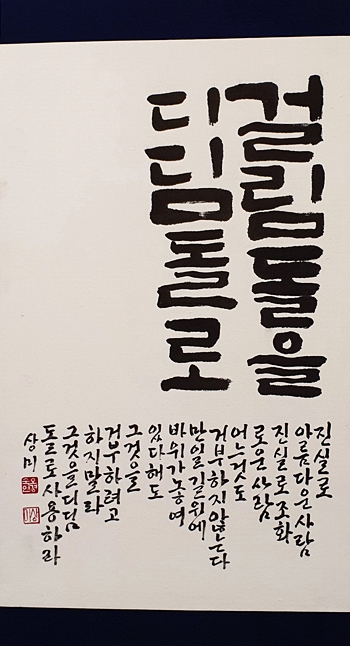 걸림돌을
디딤돌로
진실로
아름다운사람
진실로조화
로운사람
어느것도
거부하지않는다
만일길위에
바위가놓여
있다해도
그것을
거부하려고
하지말라
그것을디딤
돌로사용하라
상미